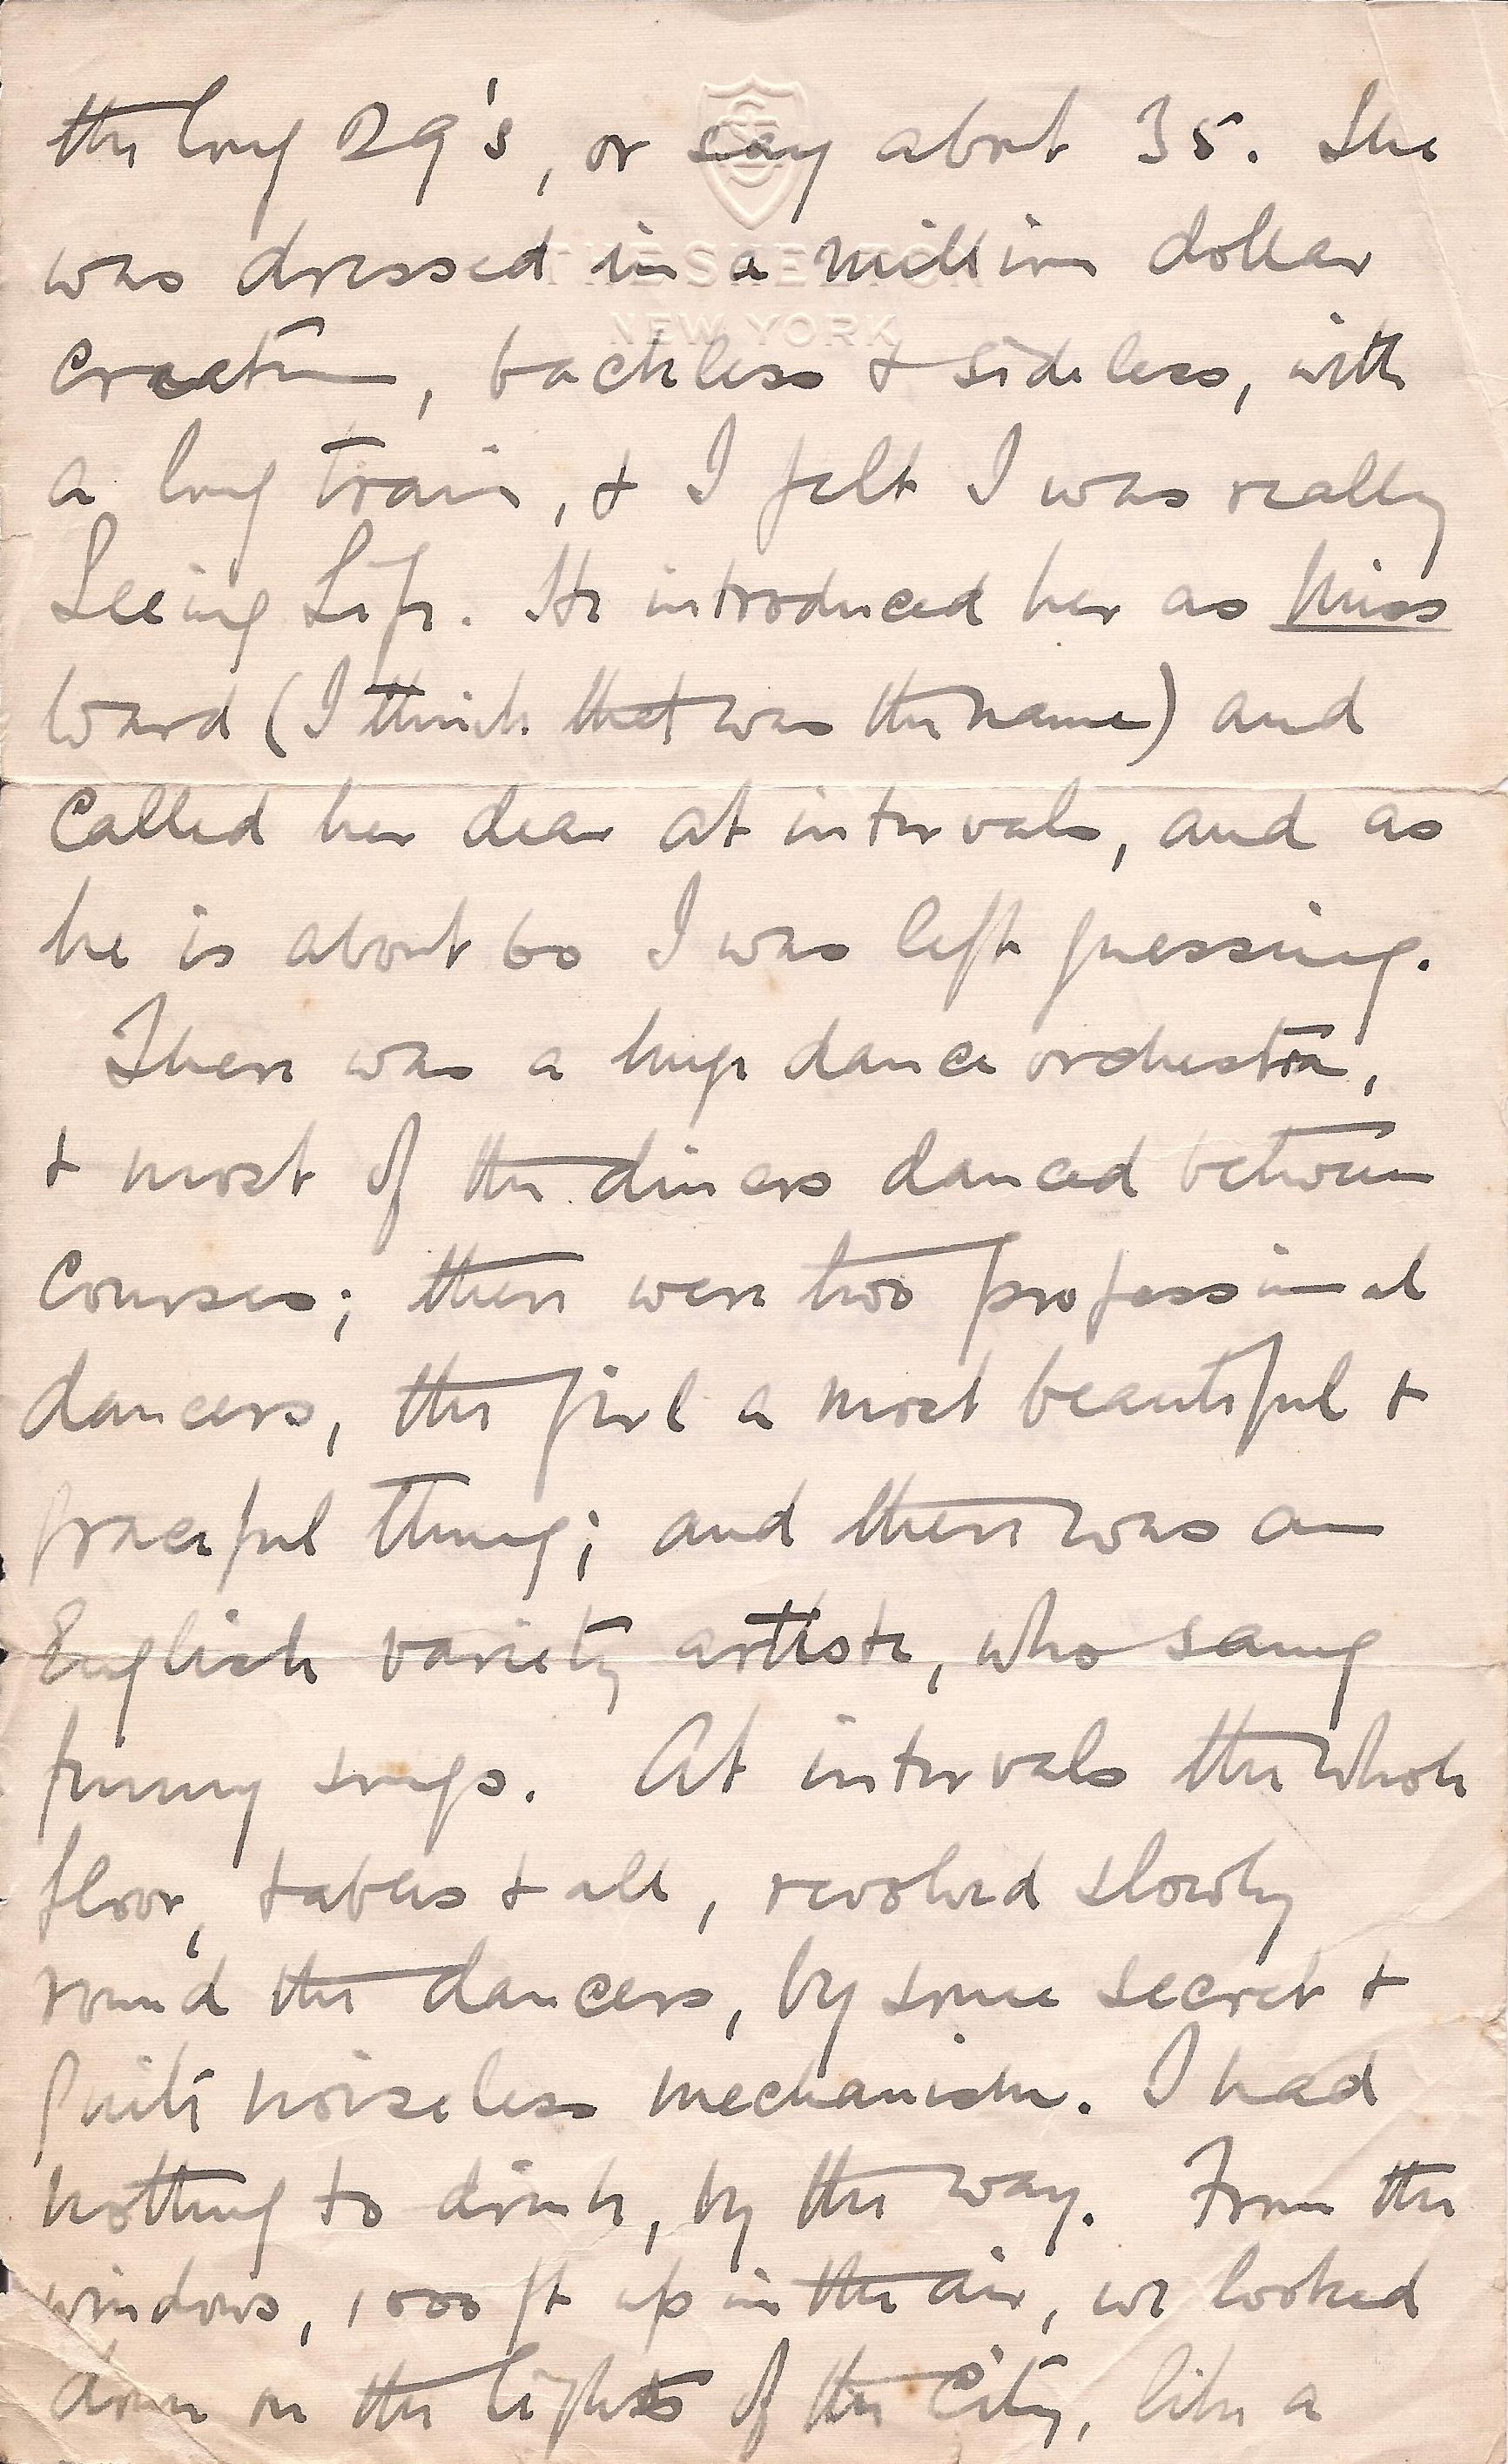 the long 29's, or say about 35. She
THE SHELTON
was dressed in a million dollar
NEW YORK
creation, backless & sideless, with
a long train, & I felt I was really
Seeing Life. He introduced her as Miss
Ward (I think that was the name) and
called her dear at intervals, and as
he is about 60 I was left guessing.
There was a huge dance orchestra,
& most of the diners danced between
courses; there were two professional
dancers, the girl a most beautiful &
graceful thing; and there was an
English variety artiste, who sang
funny songs. At intervals the whole
floor, tables & all, revolved slowly
round the dancers, by some secret &
quite noiseless mechanism. I had
nothing to drink, by the way. From the
windows, 1000 ft up in the air, we looked
down on the lights of the City, like a